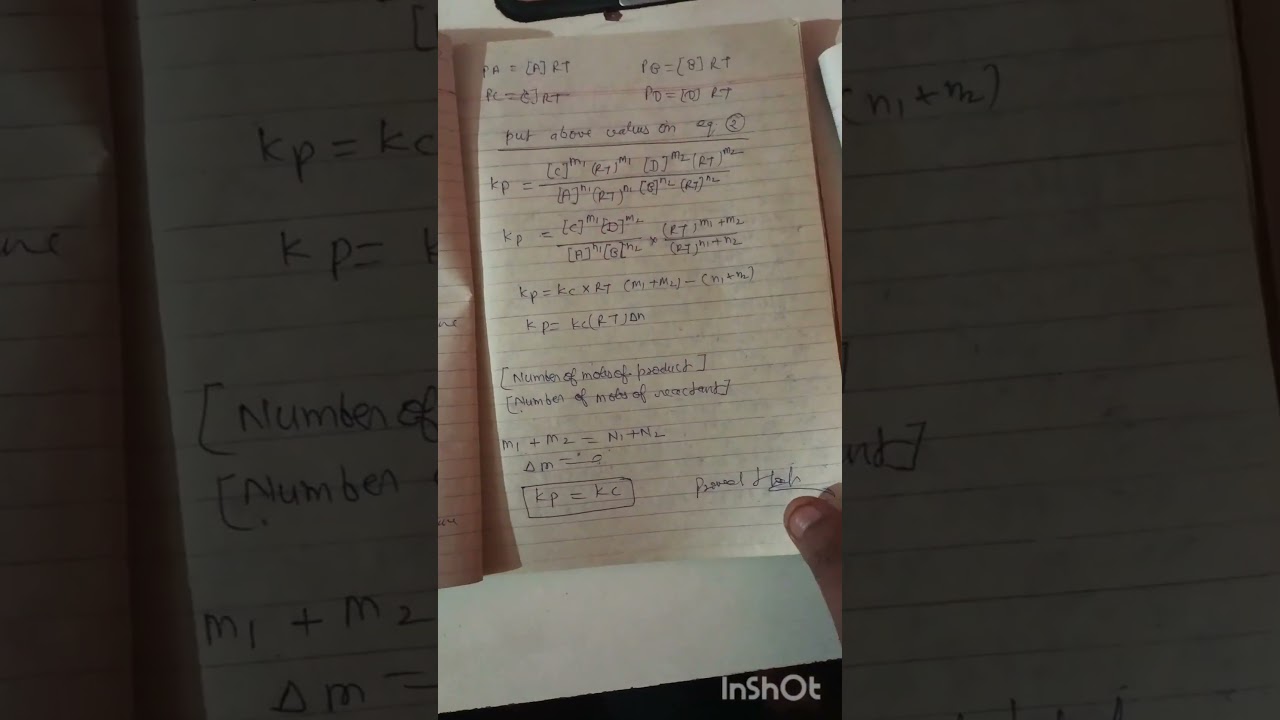 PA = [A] RT PB = [B] RT
PC = [C] RT PD = [D] RT
put above value in eq ②
kp = [C]^m1 (RT)^m1 [D]^m2 (RT)^m2 / [A]^n1 (RT)^n1 [B]^n2 (RT)^n2
kp = [C]^m1 [D]^m2 / [A]^n1 [B]^n2 × (RT)^m1+m2 / (RT)^n1+n2
kp = kc × RT (m1+m2) - (n1+n2)
kp = kc (RT) Δn
[Number of mols of product]
[Number of mols of reactant]
m1 + m2 = N1 + N2
Δm = 0
kp = kc
Proved
InShOt